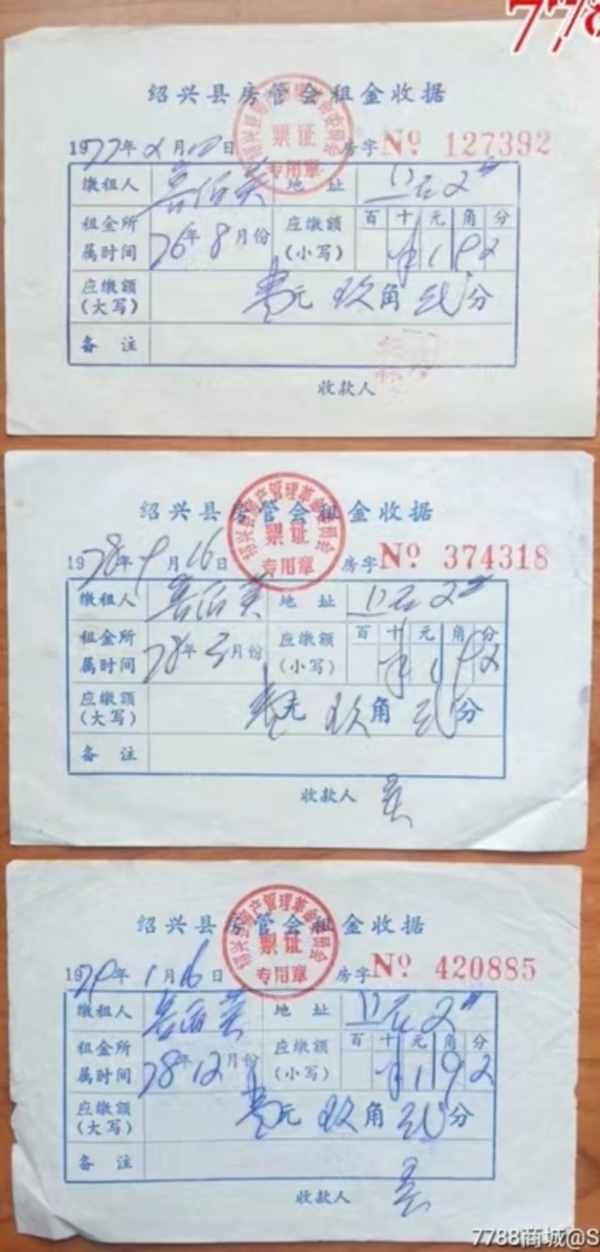 778
绍兴县房管会租金收据
绍兴县房产管理革命委员会
票证
专用章
1977年2月10日 房字 No 127392
缴租人 地址
租金所属时间 76年8月份 应缴额(小写) 百十元角分 ¥1 9 2
应缴额(大写) 壹元 玖角 贰分
备注
收款人
绍兴县房管会租金收据
绍兴县房产管理革命委员会
票证
专用章
1978年9月16日 房字 No 374318
缴租人 地址
租金所属时间 78年 月份 应缴额(小写) 百十元角分 ¥1 9 2
应缴额(大写) 壹元 玖角 贰分
备注
收款人 吴
绍兴县房管会租金收据
绍兴县房产管理革命委员会
票证
专用章
1979年1月16日 房字 No 420885
缴租人 地址
租金所属时间 78年12月份 应缴额(小写) 百十元角分 ¥1 9 2
应缴额(大写) 壹元 玖角 贰分
备注
收款人 吴
7788商城@S